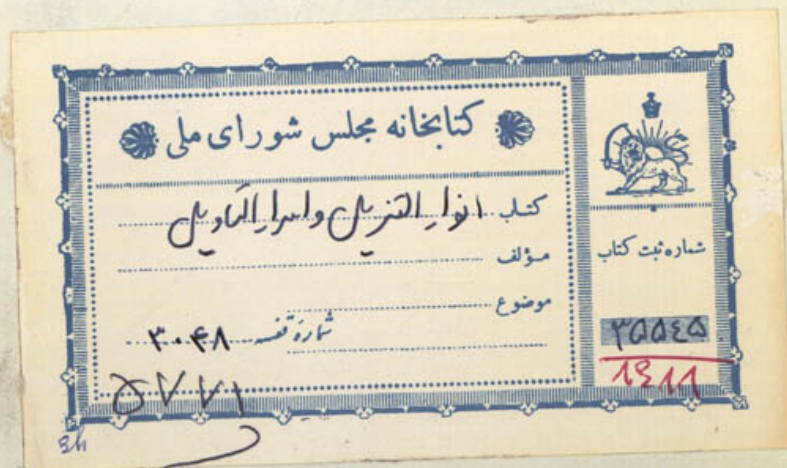 کتابخانه مجلس شورای ملی
کتاب انوار التنزیل و اسرار التاویل
مؤلف
موضوع
شماره قفسه ۳۰۴۸
۵۷۷۱
شماره ثبت کتاب
۳۵۵۴۵